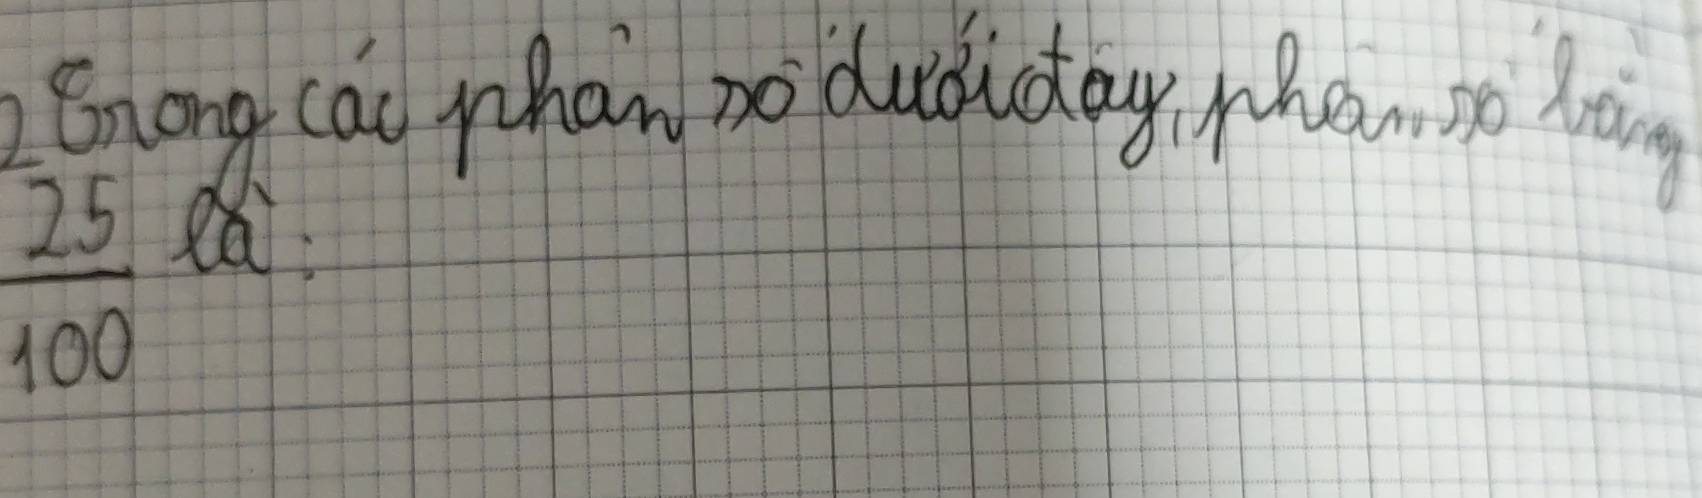 2 Trong các phân số dưới đây, phân số bằng
25/100 là: